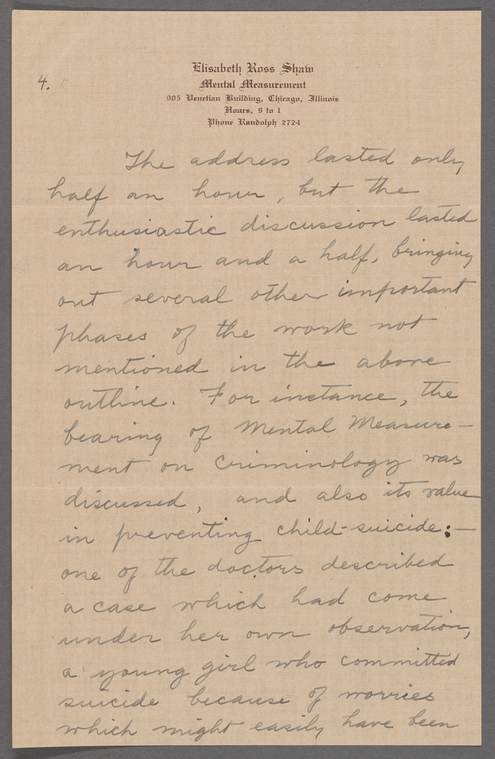 4.
Elisabeth Ross Shaw
Mental Measurement
905 Venetian Building, Chicago, Illinois
Hours, 9 to 1
Phone Randolph 2724
The address lasted only
half an hour, but the
enthusiastic discussion lasted
an hour and a half, bringing
out several other important
phases of the work not
mentioned in the above
outline. For instance, the
bearing of Mental Measure-
ment on criminology was
discussed, and also its value
in preventing child-suicide:—
one of the doctors described
a case which had come
under her own observation,
a young girl who committed
suicide because of worries
which might easily have been